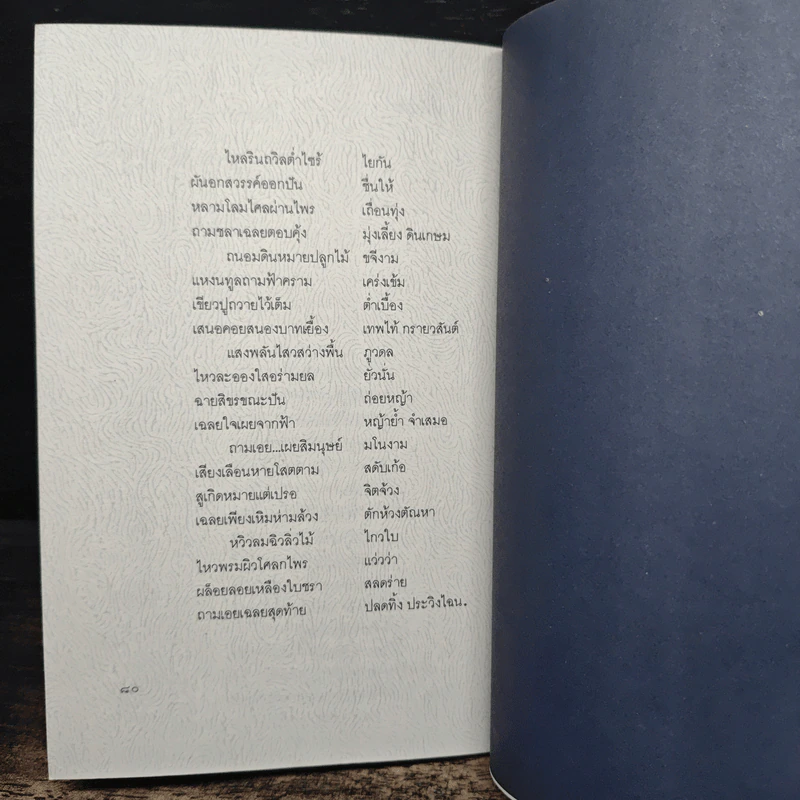 ไหลรินถวิลต่ำไซร้ ไยกัน
ผันอกสวรรค์ออกปัน ชื่นให้
หลามโลมไศลผ่านไพร เถื่อนทุ่ง
ถามชลาเฉลยตอบคุ้ง มุ่งเลี้ยง ดินเกษม
ถนอมดินหมายปลูกไม้ ขจีงาม
แหงนทูลถามฟ้าคราม เคร่งเข้ม
เขียวปูถวายไว้เต็ม ต่ำเบื้อง
เสนอคอยสนองบาทเยื้อง เทพไท้ กรายวสันต์
แสงพลันไสวสว่างพื้น ภูวดล
ไหวละอองใสอร่ามยล ยัวนั่น
ฉายสิขรขณะปัน ถ่อยหญ้า
เฉลยใจเผยจากฟ้า หญ้าย้ำ จำเสมอ
ถามเอย...เผยสิมนุษย์ มโนงาม
เสียงเลือนหายโสตตาม สดับเก้อ
สูเกิดหมายแต่เปรอ จิตจ้วง
เฉลยเพียงเหิมห่ามล้วง ตักห้วงตัณหา
หวิวลมฉิวลิ่วไม้ ไกวใบ
ไหวพรมผิวโศลกไพร แว่วว่า
ผล็อยลอยเหลืองใบชรา สลดร่าย
ถามเอยเฉลยสุดท้าย ปลดทิ้ง ประวิงไฉน.
๘๐